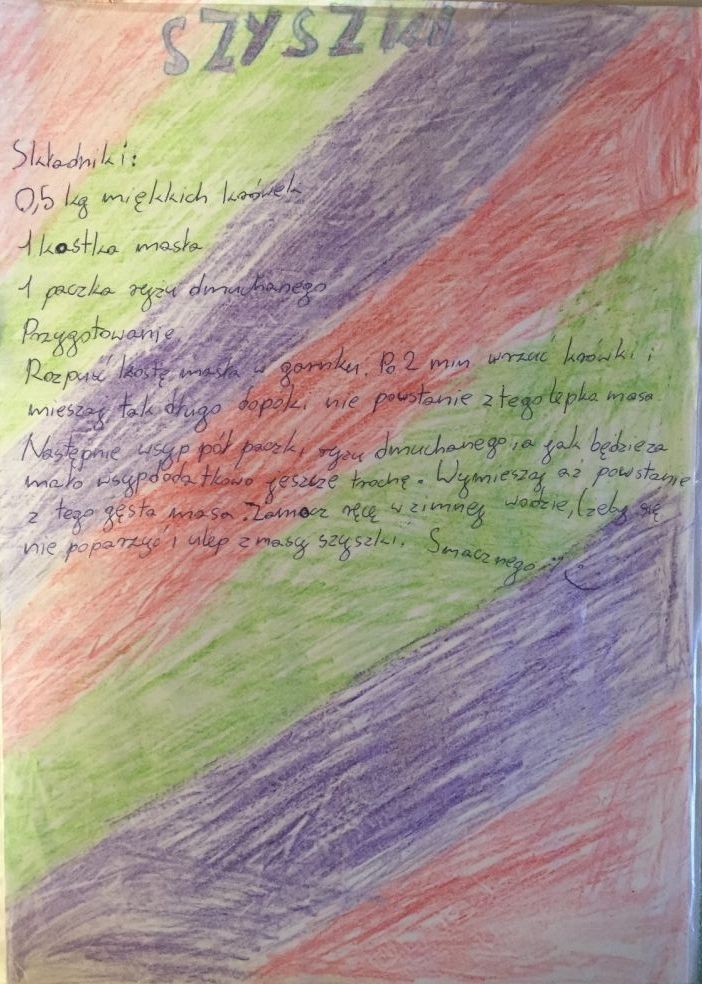 SZYSZKI
Składniki:
0,5 kg miękkich krówek
1 kostka masła
1 paczka ryżu dmuchanego
Przygotowanie
Rozpuść kostę masła w garnku. Po 2 min wrzuć krówki i
mieszaj tak długo dopóki nie powstanie z tego lepka masa.
Następnie wsyp pół paczki ryżu dmuchanego, a jak będzie za
mało wsyp dodatkowo jeszcze trochę. Wymieszaj aż powstanie
z tego gęsta masa. Zamocz ręce w zimnej wodzie, (żeby się
nie poparzyć i ulep z masy szyszki. Smacznego!! :)